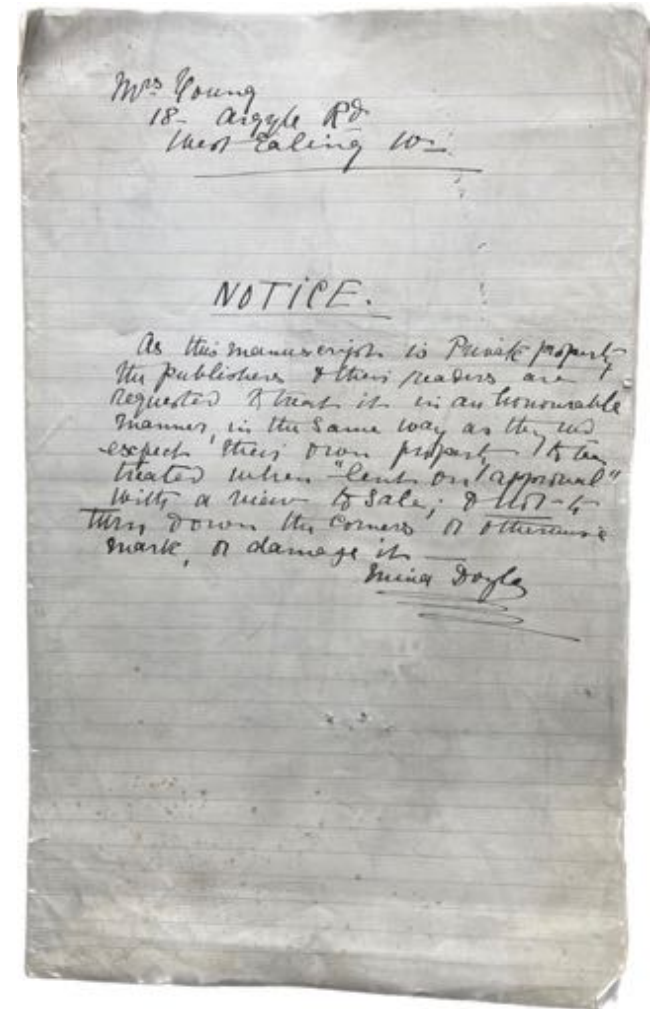 Mrs Young
18- Argyle Rd
West Ealing W-
NOTICE.
As this manuscript is Private property
the publishers & their readers are
requested to treat it in an honourable
manner, in the same way as they wd
expect their own property to be
treated when "lent on approval"
with a view to Sale; & not to
turn down the corners or otherwise
mark, or damage it —
Mina Doyle